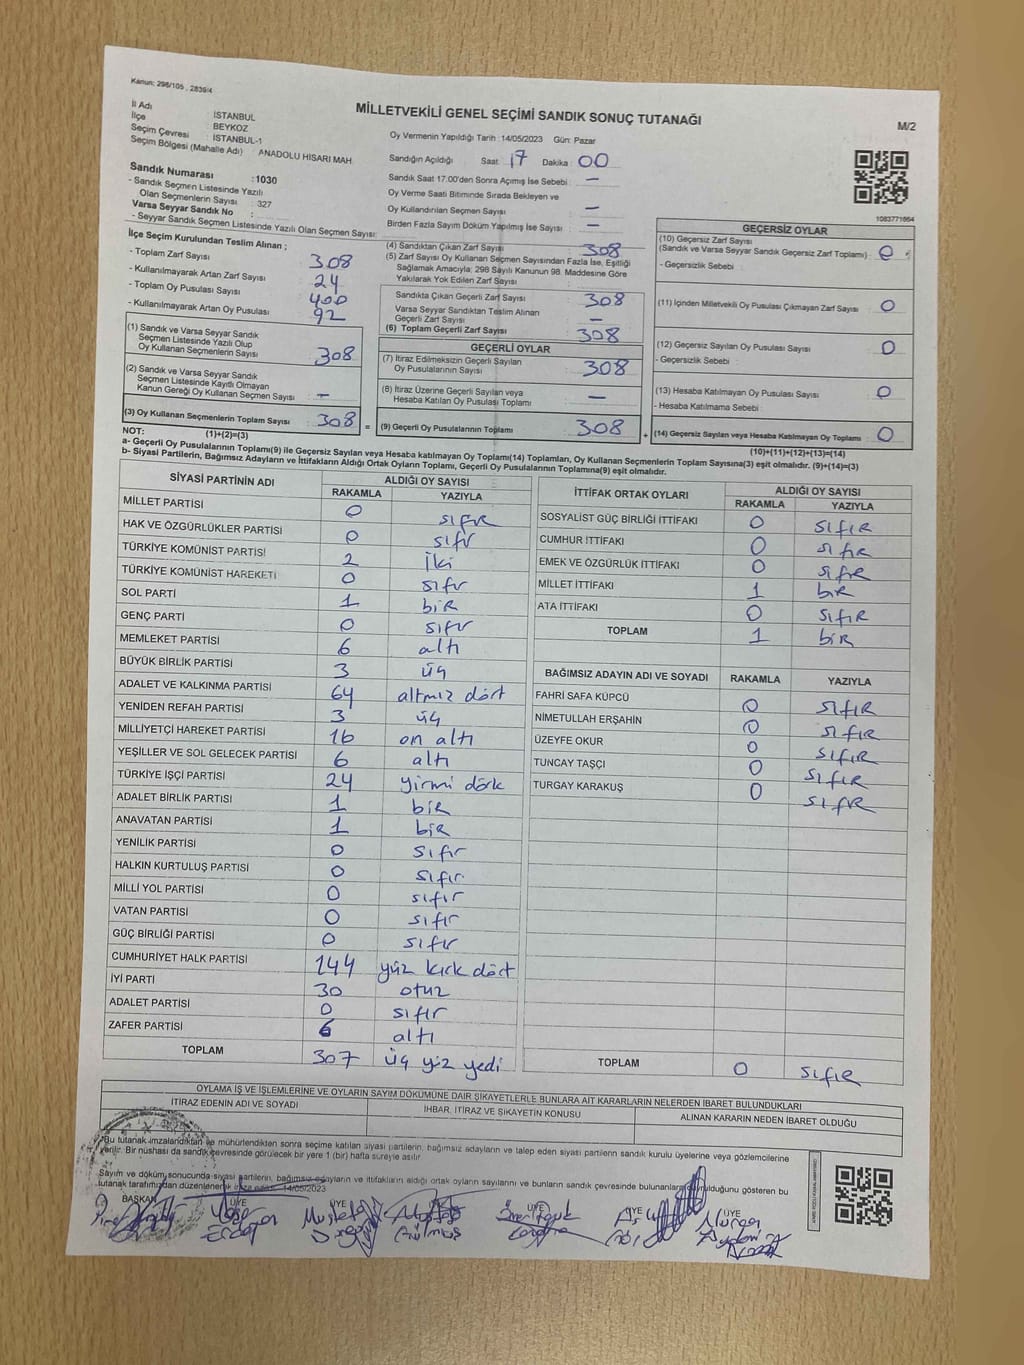 Kanun: 298/105 , 2839/4
MİLLETVEKİLİ GENEL SEÇİMİ SANDIK SONUÇ TUTANAĞI
M/2
İl Adı : İSTANBUL
İlçe : BEYKOZ
Seçim Çevresi : İSTANBUL-1
Seçim Bölgesi (Mahalle Adı) ANADOLU HİSARI MAH
Oy Vermenin Yapıldığı Tarih : 14/05/2023 Gün: Pazar
Sandığın Açıldığı Saat : 17 Dakika : 00
Sandık Saat 17.00'den Sonra Açımış İse Sebebi : —
Oy Verme Saati Bitiminde Sırada Bekleyen ve
Oy Kullandırılan Seçmen Sayısı : —
Birden Fazla Sayım Döküm Yapılmış İse Sayısı : —
Sandık Numarası : 1030
- Sandık Seçmen Listesinde Yazılı
Olan Seçmenlerin Sayısı : 327
Varsa Seyyar Sandık No :
- Seyyar Sandık Seçmen Listesinde Yazılı Olan Seçmen Sayısı:
1083771664
İlçe Seçim Kurulundan Teslim Alınan ;
- Toplam Zarf Sayısı : 308
- Kullanılmayarak Artan Zarf Sayısı : 24
- Toplam Oy Pusulası Sayısı : 400
- Kullanılmayarak Artan Oy Pusulası : 92
(1) Sandık ve Varsa Seyyar Sandık
Seçmen Listesinde Yazılı Olup
Oy Kullanan Seçmenlerin Sayısı : 308
(2) Sandık ve Varsa Seyyar Sandık
Seçmen Listesinde Kayıtlı Olmayan
Kanun Gereği Oy Kullanan Seçmen Sayısı : —
(3) Oy Kullanan Seçmenlerin Toplam Sayısı : 308 =
(4) Sandıktan Çıkan Zarf Sayısı : 308
(5) Zarf Sayısı Oy Kullanan Seçmen Sayısından Fazla İse, Eşitliği
Sağlamak Amacıyla; 298 Sayılı Kanunun 98. Maddesine Göre
Yakılarak Yok Edilen Zarf Sayısı :
Sandıkta Çıkan Geçerli Zarf Sayısı : 308
Varsa Seyyar Sandıktan Teslim Alınan
Geçerli Zarf Sayısı : —
(6) Toplam Geçerli Zarf Sayısı : 308
GEÇERLİ OYLAR
(7) İtiraz Edilmeksizin Geçerli Sayılan
Oy Pusulalarının Sayısı : 308
(8) İtiraz Üzerine Geçerli Sayılan veya
Hesaba Katılan Oy Pusulası Toplamı : —
(9) Geçerli Oy Pusulalarının Toplamı : 308 +
GEÇERSİZ OYLAR
(10) Geçersiz Zarf Sayısı
(Sandık ve Varsa Seyyar Sandık Geçersiz Zarf Toplamı) : 0
- Geçersizlik Sebebi :
(11) İçinden Milletvekili Oy Pusulası Çıkmayan Zarf Sayısı : 0
(12) Geçersiz Sayılan Oy Pusulası Sayısı : 0
- Geçersizlik Sebebi :
(13) Hesaba Katılmayan Oy Pusulası Sayısı : 0
- Hesaba Katılmama Sebebi :
(14) Geçersiz Sayılan veya Hesaba Katılmayan Oy Toplamı : 0
NOT: (1)+(2)=(3) (10)+(11)+(12)+(13)=(14)
a- Geçerli Oy Pusulalarının Toplamı(9) ile Geçersiz Sayılan veya Hesaba katılmayan Oy Toplam(14) Toplamları, Oy Kullanan Seçmenlerin Toplam Sayısına(3) eşit olmalıdır. (9)+(14)=(3)
b- Siyasi Partilerin, Bağımsız Adayların ve İttifakların Aldığı Ortak Oyların Toplamı, Geçerli Oy Pusulalarının Toplamına(9) eşit olmalıdır.
SİYASİ PARTİNİN ADI ALDIĞI OY SAYISI
RAKAMLA YAZIYLA
MİLLET PARTİSİ 0 sıfır
HAK VE ÖZGÜRLÜKLER PARTİSİ 0 sıfır
TÜRKİYE KOMÜNİST PARTİSİ 2 iki
TÜRKİYE KOMÜNİST HAREKETİ 0 sıfır
SOL PARTİ 1 bir
GENÇ PARTİ 0 sıfır
MEMLEKET PARTİSİ 6 altı
BÜYÜK BİRLİK PARTİSİ 3 üç
ADALET VE KALKINMA PARTİSİ 64 altmız dört
YENİDEN REFAH PARTİSİ 3 üç
MİLLİYETÇİ HAREKET PARTİSİ 16 on altı
YEŞİLLER VE SOL GELECEK PARTİSİ 6 altı
TÜRKİYE İŞÇİ PARTİSİ 24 yirmi dört
ADALET BİRLİK PARTİSİ 1 bir
ANAVATAN PARTİSİ 1 bir
YENİLİK PARTİSİ 0 sıfır
HALKIN KURTULUŞ PARTİSİ 0 sıfır
MİLLİ YOL PARTİSİ 0 sıfır
VATAN PARTİSİ 0 sıfır
GÜÇ BİRLİĞİ PARTİSİ 0 sıfır
CUMHURİYET HALK PARTİSİ 144 yüz kırk dört
İYİ PARTİ 30 otuz
ADALET PARTİSİ 0 sıfır
ZAFER PARTİSİ 6 altı
TOPLAM 307 üç yüz yedi
İTTİFAK ORTAK OYLARI ALDIĞI OY SAYISI
RAKAMLA YAZIYLA
SOSYALİST GÜÇ BİRLİĞİ İTTİFAKI 0 sıfır
CUMHUR İTTİFAKI 0 sıfır
EMEK VE ÖZGÜRLÜK İTTİFAKI 0 sıfır
MİLLET İTTİFAKI 1 bir
ATA İTTİFAKI 0 sıfır
TOPLAM 1 bir
BAĞIMSIZ ADAYIN ADI VE SOYADI RAKAMLA YAZIYLA
FAHRİ SAFA KÜPCÜ 0 sıfır
NİMETULLAH ERŞAHİN 0 sıfır
ÜZEYFE OKUR 0 sıfır
TUNCAY TAŞÇI 0 sıfır
TURGAY KARAKUŞ 0 sıfır
TOPLAM 0 sıfır
OYLAMA İŞ VE İŞLEMLERİNE VE OYLARIN SAYIM DÖKÜMÜNE DAİR ŞİKAYETLERLE BUNLARA AİT KARARLARIN NELERDEN İBARET BULUNDUKLARI
İTİRAZ EDENİN ADI VE SOYADI İHBAR, İTİRAZ VE ŞİKAYETİN KONUSU ALINAN KARARIN NEDEN İBARET OLDUĞU
*Bu tutanak imzalandıktan ve mühürlendikten sonra seçime katılan siyasi partilerin, bağımsız adayların ve talep eden siyasi partilerin sandık kurulu üyelerine veya gözlemcilerine
verilir. Bir nüshası da sandık çevresinde görülecek bir yere 1 (bir) hafta süreyle asılır
Sayım ve döküm sonucunda siyasi partilerin, bağımsız adayların ve ittifakların aldığı ortak oyların sayılarını ve bunların sandık çevresinde bulunanların duyurulduğunu gösteren bu
tutanak tarafımızdan düzenlenerek imza edildi. 14/05/2023
BAŞKAN ÜYE ÜYE ÜYE ÜYE ÜYE ÜYE